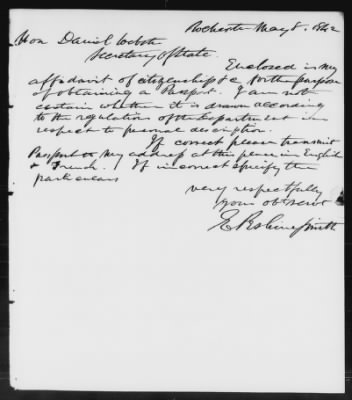 Rochester May 8. 1842
Hon Daniel Webster
Secretary of State.
Enclosed is my
affidavit of citizenship &c for the purpose
of obtaining a Passport. I am not
certain whether it is drawn according
to the regulations of the department in
respect to personal description.
If correct please transmit
Passport to my address at this place in English
& French. If incorrect specify the
particulars
very respectfully
your obt servt
E Peshine Smith